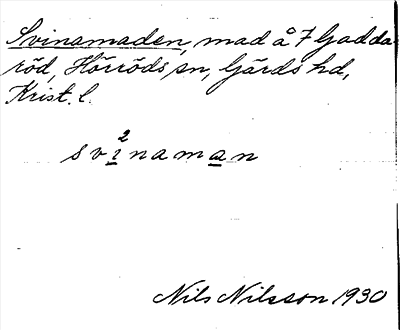 Svinamaden, mad å 7 Gadda-
röd, Hörröds sn, Gärds hd,
Krist. l.
2
svinaman
Nils Nilsson 1930